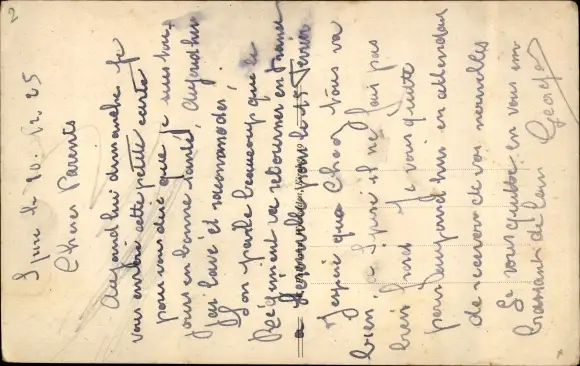 2
Spire le 20. 12. 25
Chers Parents
Aujourd'hui dimanche je
vous envoie cette petite carte
pour vous dire que je suis tou
jours en bonne santé, Aujourd'hui
j'ai lavé et raccommoder,
L'on parle beaucoup que le
Régiment va retourner en France
a pour le 15 Fevrier
J'espère que Chez Vous va
bien, a Spire il ne fais pas
bien froid Je vous quitte
pour aujourd'hui en attendant
de recevoir de vos nouvelles
Je vous quitte en vous em
brassant de loin
George